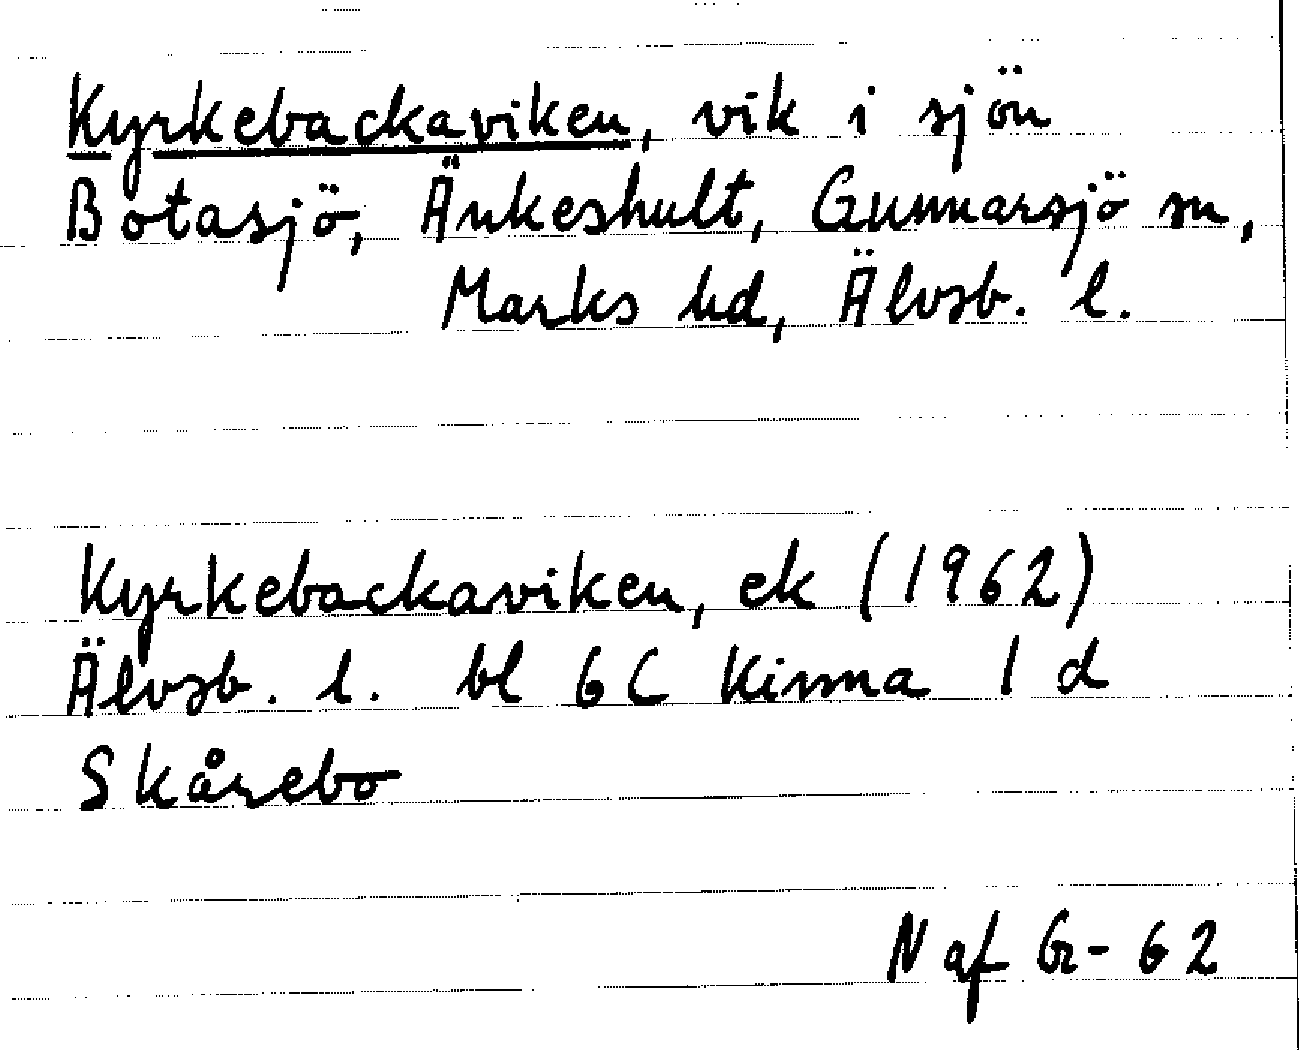 Kyrkebackaviken, vik i sjön
Botasjö, Änkeshult, Gunnarsjö sn,
Marks hd, Älvsb. l.
Kyrkebackaviken, ek (1962)
Älvsb. l. bl 6C Kinna 1 d
Skårebo
N af Gr- 62